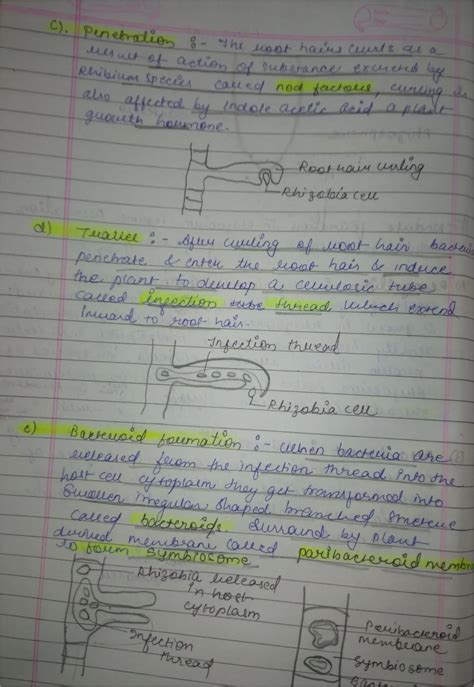 C). Penetration :- The root hairs curls as a
result of action of substance excreted by
Rhibium species called nod factors, curling is
also affected by indole acetic acid a plant
growth hormone.
Root hair curling
Rhizobia cell
d) :- After curling of root hair bacteria
penetrate & enter the root hair & induce
the plant to develop a cellulosic tube
called infection tube thread which extend
inward to root hair.
Infection thread
Rhizobia cell
e) Bacteroid foumation :- when bacteria are
released from the infection thread into the
host cell cytoplasm they get transformed into
swollen irregular shaped branched structure
called bacteroids. Surround by plant
derived membrane called paribacteroid membra
To form symbiosome
Rhizobia released
in host
cytoplasm
Infection
thread
Peribacteroid
membrane
Symbiosome